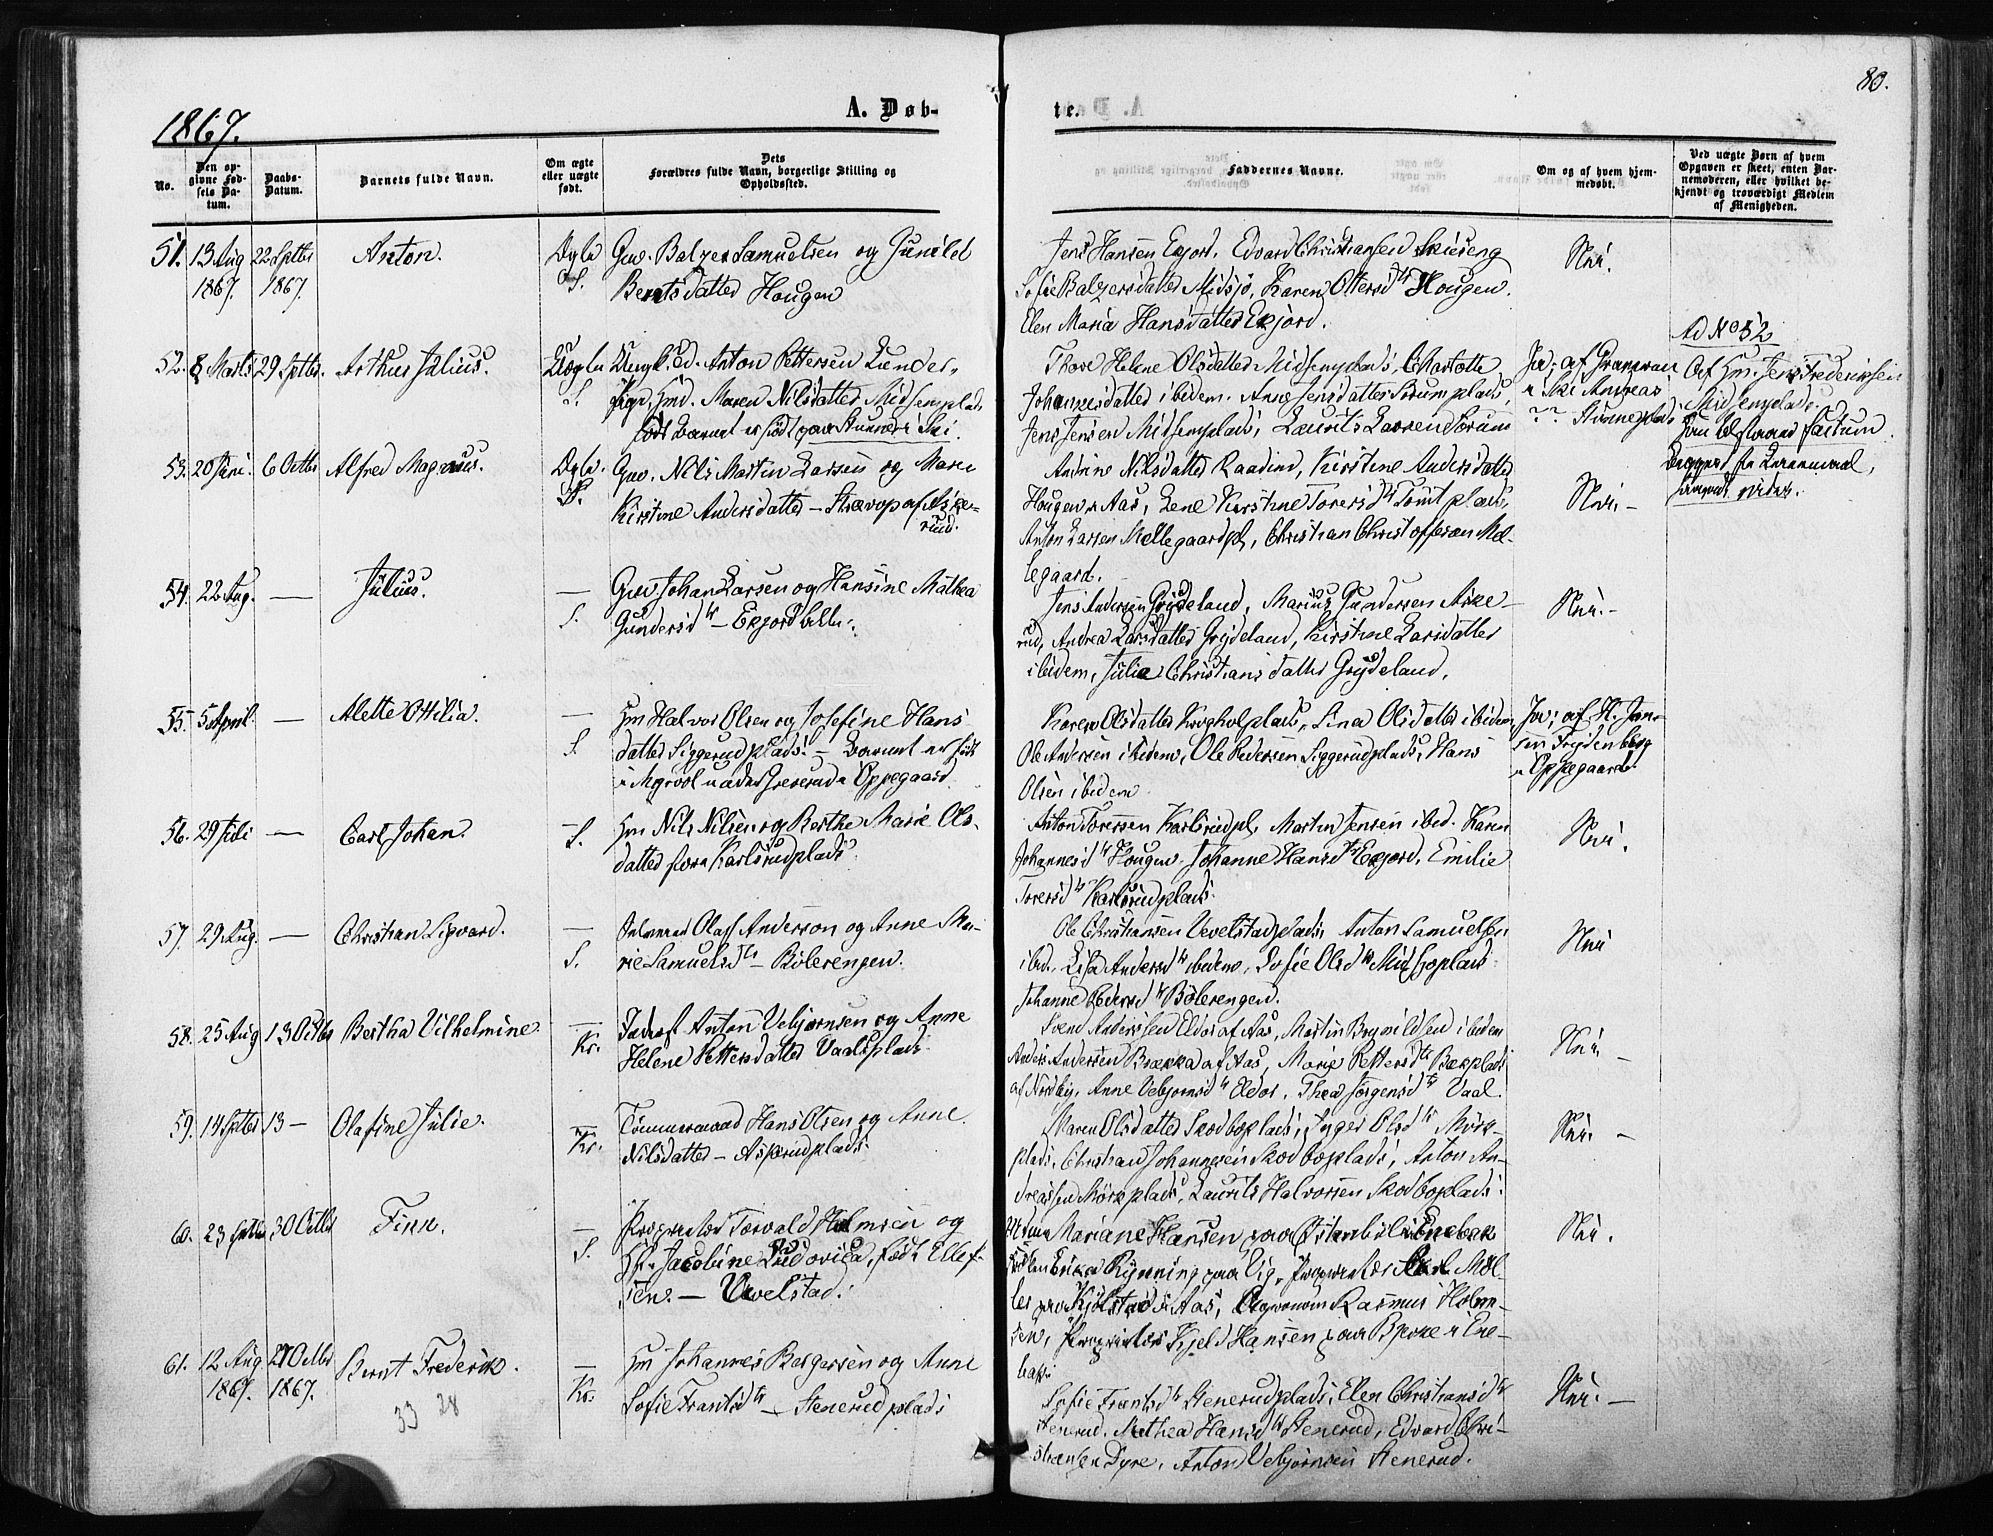 80.
1867.
A. Døb-
te.
No.
Den op-
givne Fød-
sels Da-
tum.
Daabs-
Datum.
Barnets fulde Navn.
Om ægte
eller uægte
født.
Dets
Forældres fulde Navn, borgerlige Stilling og
Opholdssted.
Faddernes Navne.
Om og af hvem hjem-
medøbt.
Ved uægte Børn af hvem
Opgaven er skeet, enten Bar-
nemoderen, eller hvilket be-
kjendt og troværdigt Medlem
af Menigheden.
51. 13 Aug 22 Septbr Anton. Ægte Gm. Balzer Samuelsen og Gunild
1867. 1867. S. Berntsdatter Hougen
Jens Hansen Exjord, Edvard Christiansen Skieseng
Sofie Balzersdatter Midsjø, Karen Ottersdtr Hougen.
Elen Maria Hansdatter Exjord.
Nei.
52. 8 Marts 29 Septbr. Arthur Julius. Uægte Ungk. Anton Pettersen Lunder,
S. Maren Nilsdatter Midsemplads
Barnet er født paa Stunner i Ski.
Thore Helene Olsdatter Midsemplads, Charlotte
Johannesdatter ibidem. Anne Jensdatter Sorumplads,
Jens Jensen Midsemplads, Laurits Larsen Sorum
Ja; af
i Ski Andreas
Ad No 52
Af Hm. Jens Frederiksen
Midsemplads.
53. 20 Juni 6 Octbr Alfred Magnus. Ægte. Gm. Nils Martin Larsen og Maren
S. Kirstine Andersdatter – af Aske-
rud.
Andrine Nilsdatter Raadim, Kirstine Andersdatter
Hougen i Aas, Lene Kirstine Toresdtr Tomtplads,
Anton Larsen Mellegaardpl, Christian Christoffersen Mel-
legaard.
Nei. –
54. 22 Aug. — Julius. — Gm Johan Larsen og Hansine Mathea
S. Gundersdtr – Exjord
Jens Andersen Grydeland, Marius Gundersen Aske-
rud, Andrea Larsdatter Grydeland, Kirstine Larsdatter
ibidem, Julie Christiansdatter Grydeland.
Nei. –
55. 5 April. — Alette Ottilia. — Hm Halvor Olsen og Josefine Hans-
S. datter Siggerudplads. – Barnet er født
i Myrvol under i Oppegaard
Karen Olsdatter Krogholplads, Lina Olsdatter ibidem,
Ole Andersen ibidem, Ole Pedersen Siggerudplads, Hans
Olsen ibidem
Ja; af H. Jen-
sen Frydenberg
i Oppegaard
56. 29 Juli — Carl Johan. — Hm Nils Nilsen og Berthe Marie Ols-
S. datter Karlsrudplads.
Anton Toressen Karlsrudpl, Martin Jensen ibid. Karen
Johannesdtr Hougen. Johanne Hansdtr Exjord, Emilie
Toresdtr Karlsrudplads.
Nei.
57. 29 Aug. — Christian Sigvard. — Olaf Anderson og Anne Ma-
S. rie Samuelsdtr – Bølerengen.
Ole Christiansen Vevelstadplads, Anton Samuelsen
ibid., Lisa Andersdtr ibidem, Sofie Olsdtr Midsjøplads
Johanne Pedersdtr Bølerengen.
Nei
58. 25 Aug 13 Octbr Bertha Vilhelmine — Inderst Anton Vebjørnsen og Anne
Kr. Helene Pettersdatter Vaalsplads
Svend Anderssen Eldor af Aas, Martin Brynildsen ibidem
Anders Andersen Brække af Aas, Marie Pettersdtr Bækplads
af Nordby, Anne Vebjørnsdtr Eldor, Thea Jørgensdtr Vaal.
Nei. –
59. 14 Septbr 13 — Olafine Julie. — Tømmermand Hans Olsen og Anne
Kr. Nilsdatter – Askerudplads.
Maren Olsdatter Skodboplads, Inger Olsdtr Mørk-
plads, Christian Johannesen Skodboplads, Anton An-
dreassen Mørkplads, Laurits Halvorsen Skodboplads.
Nei. –
60. 23 Septbr 30 Octbr Finn. — Proprietær Torvald Holmsen og
S. Hr. Jacobine Ludovica, født Ellef-
sen. – Vevelstad.
Mariane Hansen paa Østenbøl i Enebak
Frøken Erika Rynning paa Vig, Proprietær Carl Møl-
ler paa Kjølstad i Aas, Agronom Rasmus Holm-
sen, Proprietær Kjeld Hansen paa Bjerke i Ene-
bak.
Nei.
61. 12 Aug. 27 Octbr Bernt Frederik. — Hm Johannes Børgersen og Anne
1867. 1867. Kr. Sofie Frantsdtr – Stenerudplads
Sofie Frantsdtr Stenerudplads, Elen Christiansdtr
Stenerud, Mathea Hansdtr Stenerud, Edvard Chri-
stiansen Dyre, Anton Vebjørnsen Stenerud.
Nei. –
33 28